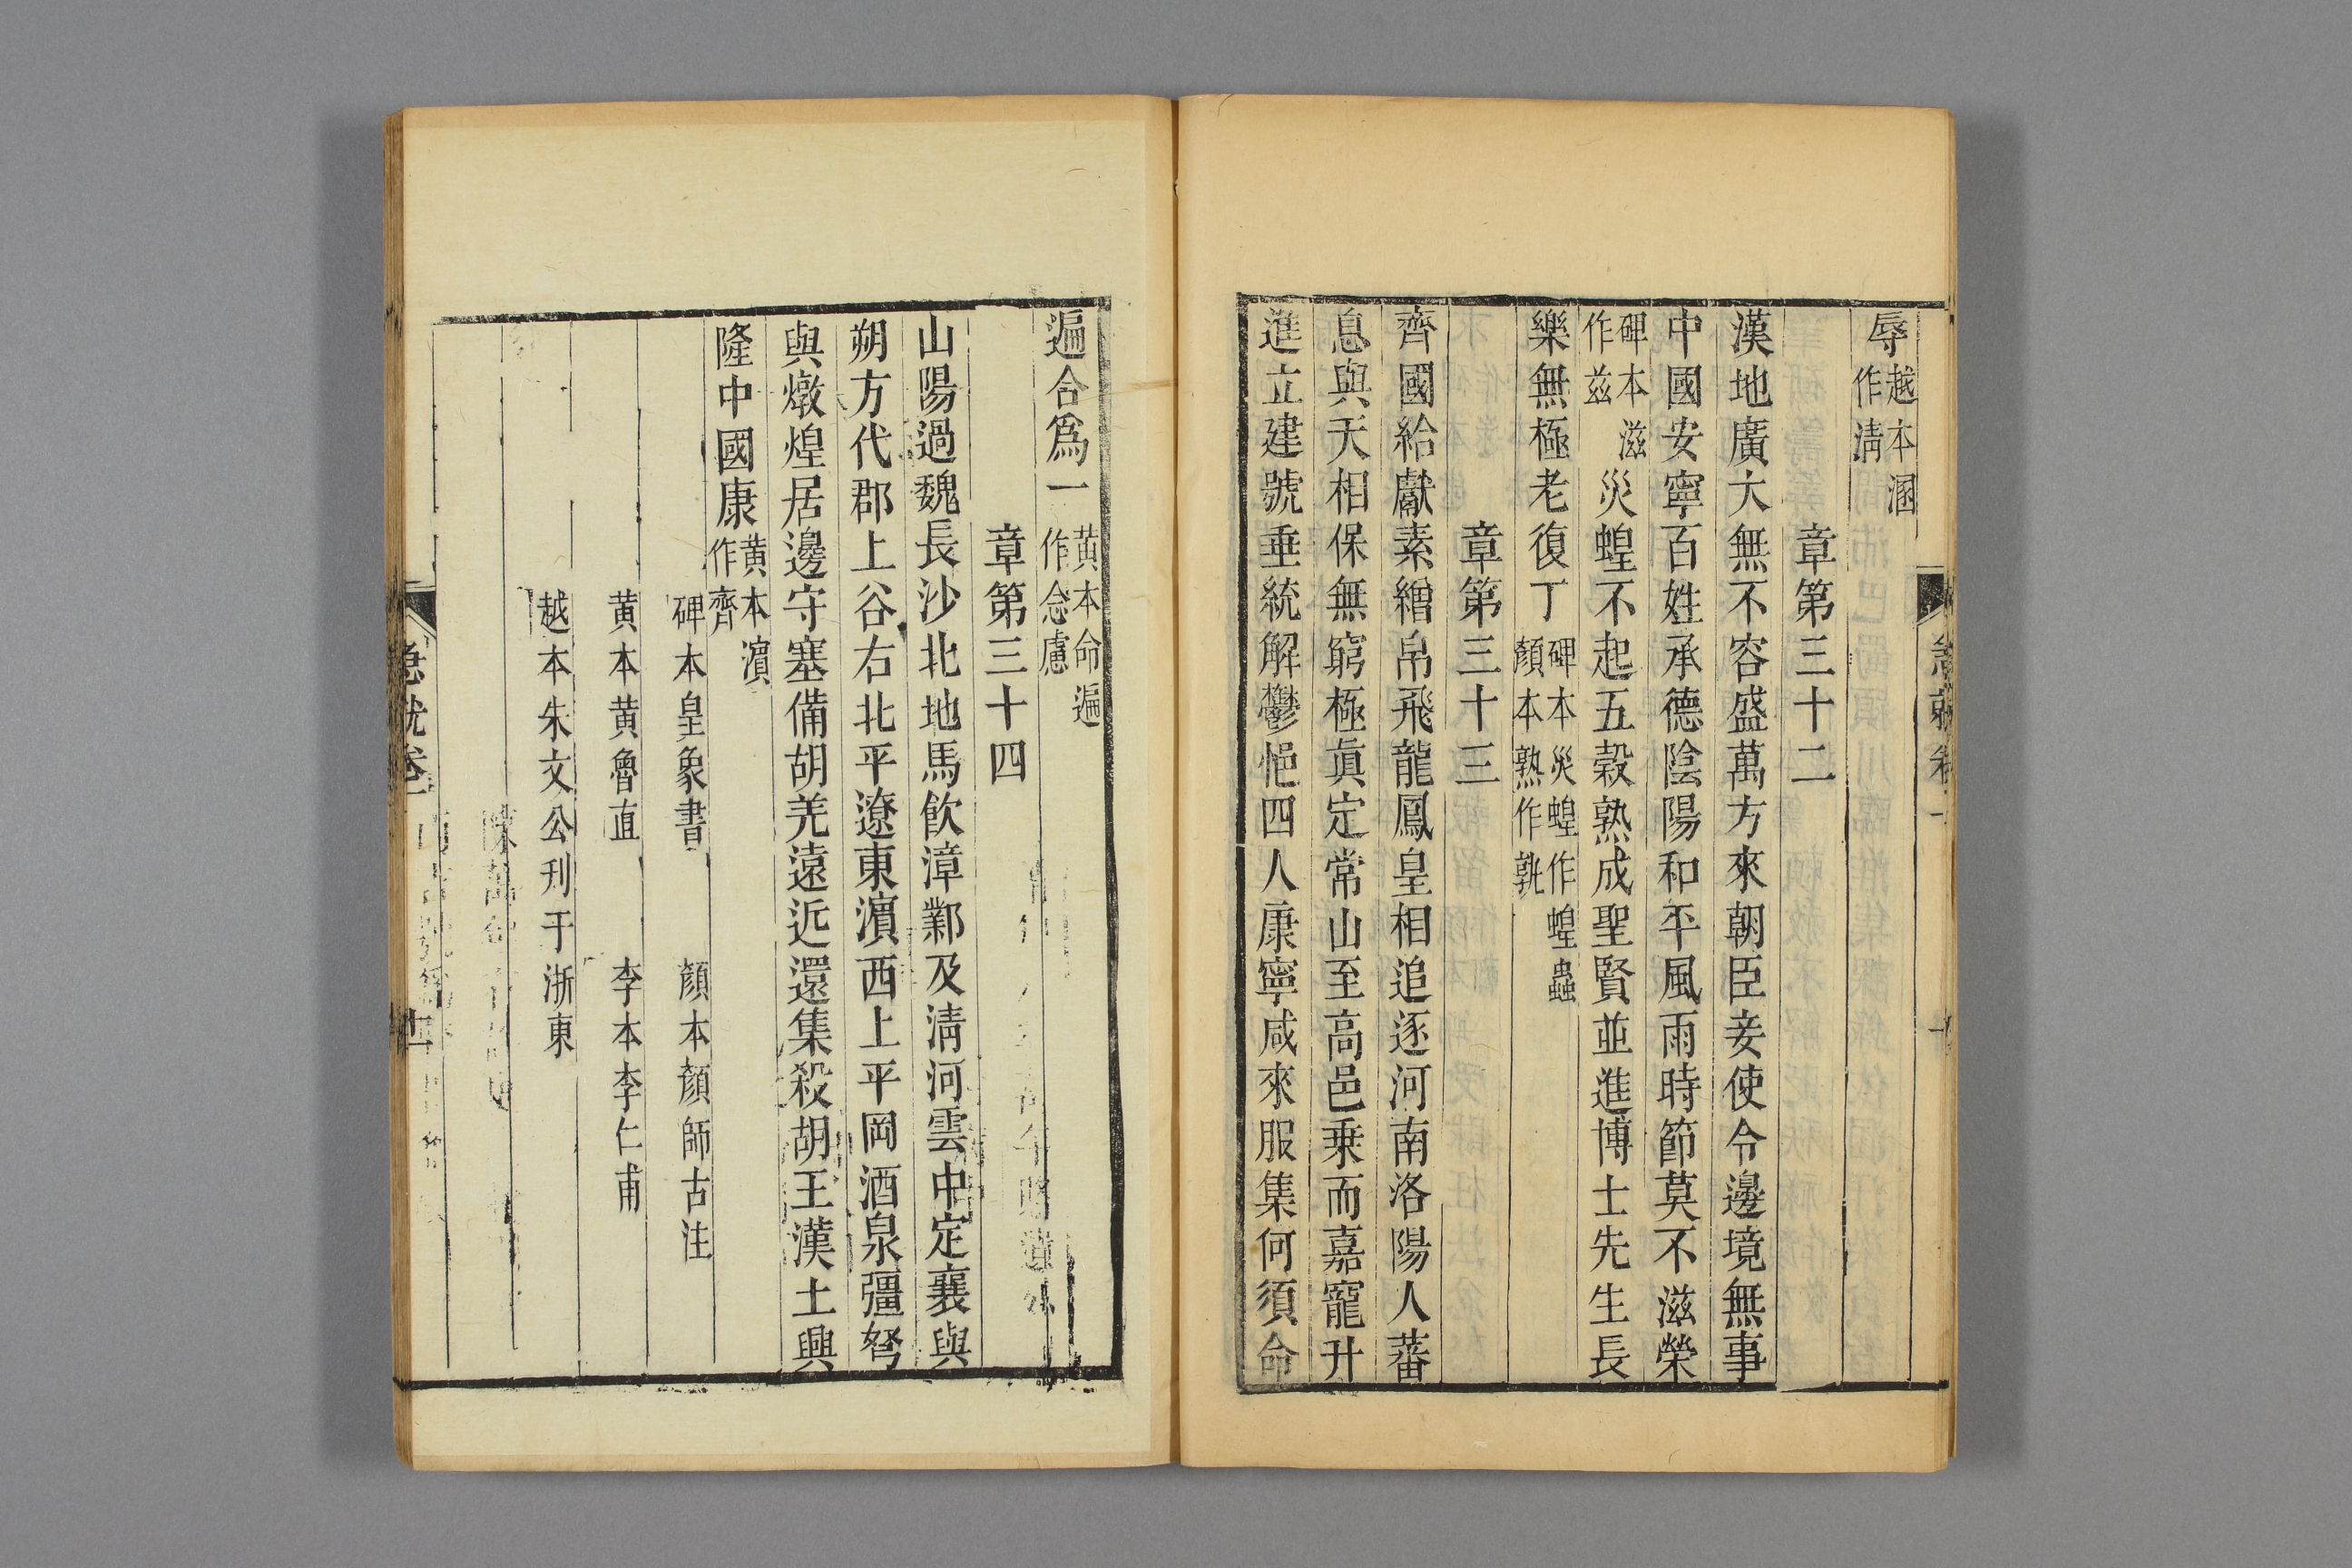 辱越本溷作溷
章第三十二
漢地廣大無不容盛萬方來朝臣妾使令邊境無事
中國安寧百姓承德陰陽和平風雨時節莫不滋榮
碑本滋作兹災蝗不起五穀熟成聖賢並進博士先生長
樂無極老復丁碑本災蝗作蝗蟲顏本熟作孰
章第三十三
齊國給獻素繒帛飛龍鳳皇相追逐河南洛陽人蕃
息與天相保無窮極眞定常山至高邑乗而嘉寵升
進立建號垂統解鬱悒四人康寧咸來服集何須命
遍合爲一黄本命遍作念慮
章第三十四
山陽過魏長沙北地馬飲漳鄴及淸河雲中定襄與
朔方代郡上谷右北平遼東濵西上平岡酒泉彊弩
與燉煌居邊守塞備胡羌遠近還集殺胡王漢土興
隆中國康黄本濵作齊
碑本皇象書 顔本顔師古注
黄本黄魯直 李本李仁甫
越本朱文公刋于浙東
急就卷